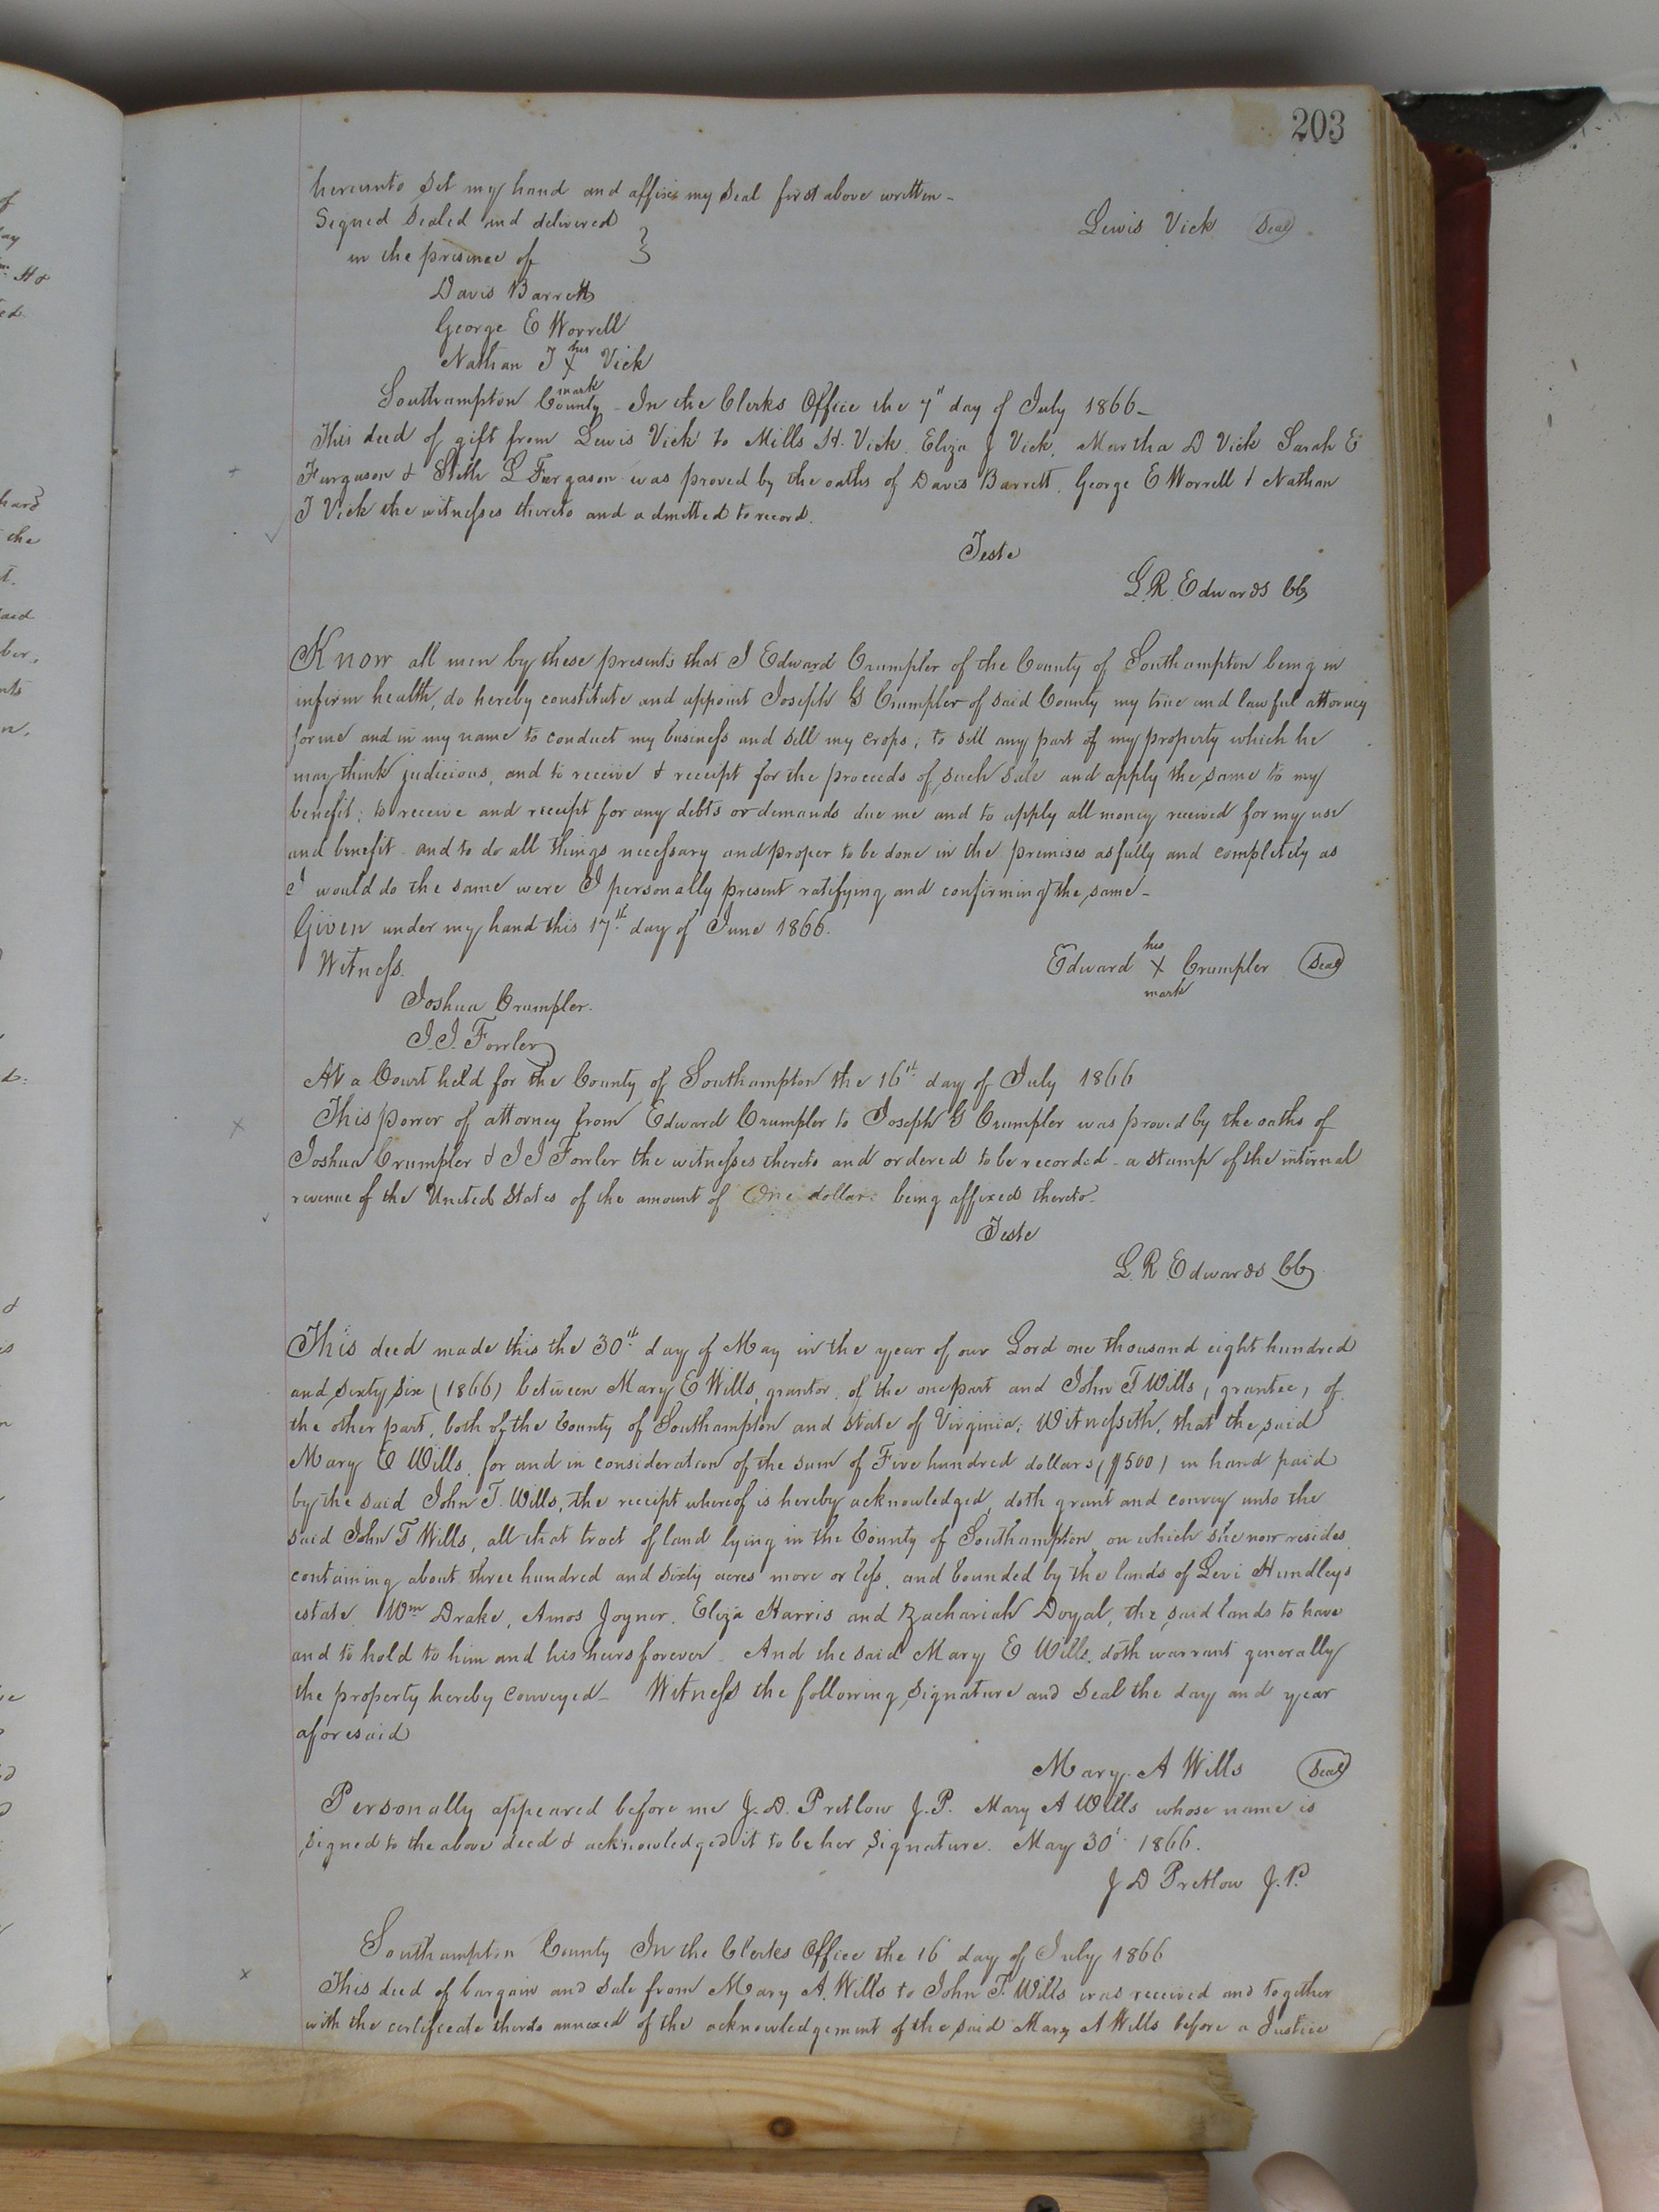 203
hereunto set my hand and affix my seal first above written -
Signed Sealed and delivered
Lewis Vick Seal
in the presince of
Davis Barrett
George E Worrell
Nathan T his X mark Vick
Southampton County - In the Clerks Office the 7" day of July 1866 -
This deed of gift from Lewis Vick to Mills H. Vick. Eliza J Vick, Martha D Vick Sarah E
Furguson & Stith L Furgason was proved by the oaths of Davis Barrett. George E Worrell & Nathan
T Vick the witnesses thereto and admitted to record.
Teste
L. R. Edwards CC
Know all men by these presents that I Edward Crumpler of the County of Southampton being in
infirm health, do hereby constitute and appoint Joseph G Crumpler of said County my true and lawful attorney
for me and in my name to conduct my business and sell my crops; to sell any part of my property which he
may think judicious, and to receive & receipt for the proceeds of such sale and apply the same to my
benefit; to receive and receipt for any debts or demands due me and to apply all money received for my use
and benefit and to do all things necessary and proper to be done in the premises as fully and completely as
I would do the same were I personally present ratifying and confirming the same -
Given under my hand this 17th day of June 1866.
Witness.
Edward his X mark Crumpler Seal
Joshua Crumpler.
J. J. Fowler
At a Court held for the County of Southampton the 16th day of July 1866
This power of attorney from Edward Crumpler to Joseph G Crumpler was proved by the oaths of
Joshua Crumpler & J J Fowler the witnesses thereto and ordered to be recorded - a stamp of the internal
revenue of the United States of the amount of One dollar being affixed thereto -
Teste
L. R. Edwards CC
This deed made this the 30th day of May in the year of our Lord one thousand eight hundred
and sixty six (1866) between Mary E Wills, grantor, of the one part and John T Wills, (grantee) of
the other part, both of the County of Southampton and state of Virginia; Witnesseth, that the said
Mary E Wills, for and in consideration of the sum of Five hundred dollars ($500) in hand paid
by the said John T. Wills, the receipt whereof is hereby acknowledged, doth grant and convey unto the
said John T Wills, all that tract of land lying in the County of Southampton, on which she now resides,
containing about three hundred and sixty acres more or less, and bounded by the lands of Levi Hundleys
estate. Wm Drake, Amos Joyner, Eliza Harris and Zachariah Doyal, the said lands to have
and to hold to him and his heirs forever. And the said Mary E Wills, doth warrant generally
the property hereby conveyed - Witness the following signature and seal the day and year
aforesaid
Mary A Wills Seal
Personally appeared before me J. D. Pretlow J.P. Mary A Wills whose name is
signed to the above deed & acknowledged it to be her signature. May 30th 1866.
J D Pretlow J.P.
Southampton County In the Clerks Office the 16 day of July 1866
This deed of bargain and sale from Mary A. Wills to John T. Wills was received and together
with the certificate thereto annexed of the acknowledgement of the said Mary A Wills before a Justice